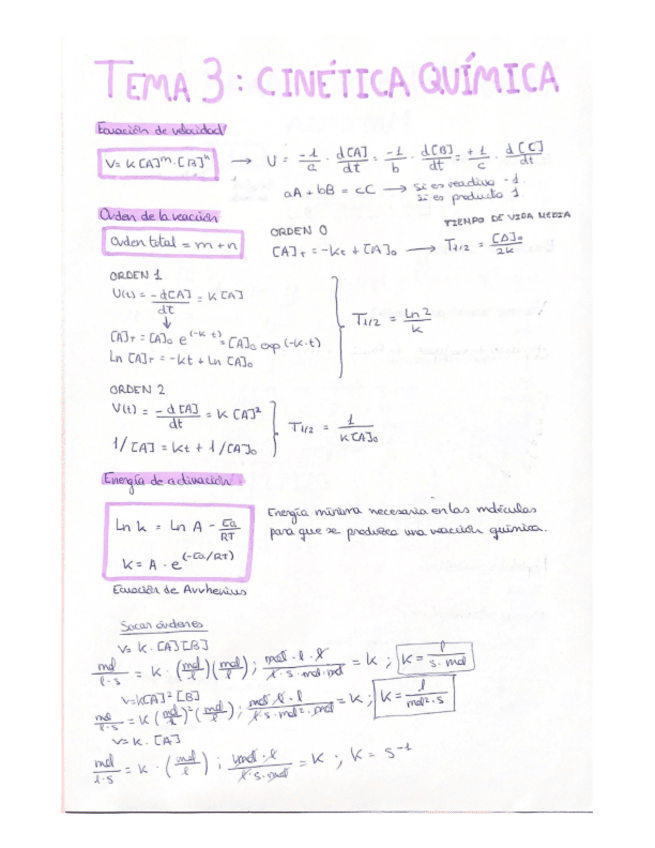 TEMA 3: CINÉTICA QUÍMICA
Ecuación de velocidad
V= K[A]ᵐ·[B]ⁿ → V = -1/a · d[A]/dt = -1/b · d[B]/dt = +1/c · d[C]/dt
aA + bB = cC → Si es reactivo -1.
Si es producto 1.
Orden de la reacción
Orden total = m+n
ORDEN 0
TIEMPO DE VIDA MEDIA
[A]t = -Kt + [A]₀ → T1/2 = [A]₀/2k
ORDEN 1
V(t) = -d[A]/dt = K[A]
↓
[A]t = [A]₀ e^(-k t) = [A]₀ exp(-k·t)
Ln [A]t = -kt + Ln [A]₀
T1/2 = Ln 2/k
ORDEN 2
V(t) = -d[A]/dt = K[A]²
1/[A] = Kt + 1/[A]₀
T1/2 = 1/K[A]₀
Energía de activación
Ln k = Ln A - Ea/RT
K = A · e^(-Ea/RT)
Energía mínima necesaria en las moléculas
para que se produzca una reacción química.
Ecuación de Arrhenius
Sacar órdenes
V= K·[A][B]
mol/l·s = K·(mol/l)(mol/l); mol·l·l/l·s·mol·mol = K; K = l/s·mol
V=K[A]²[B]
mol/l·s = K(mol/l)²(mol/l); K = l/mol²·s
V= K·[A]
mol/l·s = K·(mol/l); mol·l/l·s·mol = K; K = s⁻¹